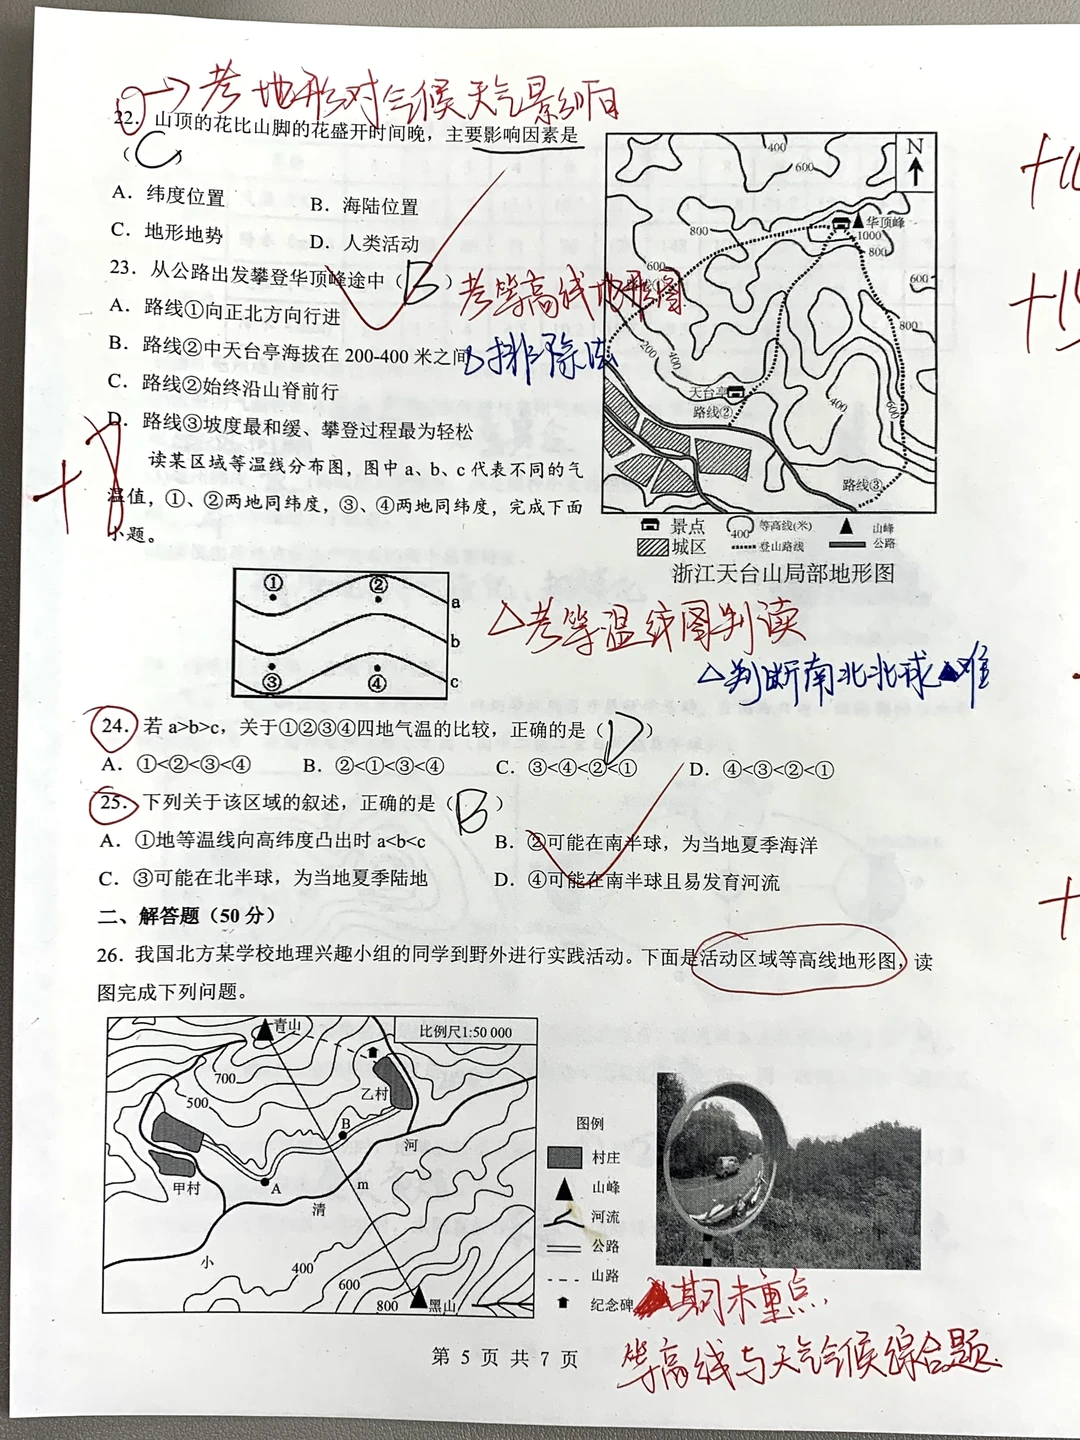 →考地形对气候天气影响
22. 山顶的花比山脚的花盛开时间晚，主要影响因素是
（C）
A. 纬度位置 B. 海陆位置
C. 地形地势 D. 人类活动
23. 从公路出发攀登华顶峰途中（B）
考等高线地形图
A. 路线①向正北方向行进
B. 路线②中天台亭海拔在 200-400 米之间
排除法
C. 路线②始终沿山脊前行
D. 路线③坡度最和缓、攀登过程最为轻松
读某区域等温线分布图，图中 a、b、c 代表不同的气
温值，①、②两地同纬度，③、④两地同纬度，完成下面
小题。
+8
N
400
600
华顶峰
1000
800
800
600
600
800
200
400
天台亭
路线②
400
600
路线③
景点 400 等高线(米) 山峰
城区 登山路线 公路
浙江天台山局部地形图
① ②
a
b
③ ④
c
△考等温线图判读
△判断南北北球 难
24. 若 a>b>c，关于①②③④四地气温的比较，正确的是（D）
A. ①<②<③<④ B. ②<①<③<④ C. ③<④<②<① D. ④<③<②<①
25. 下列关于该区域的叙述，正确的是（B）
A. ①地等温线向高纬度凸出时 a<b<c B. ②可能在南半球，为当地夏季海洋
C. ③可能在北半球，为当地夏季陆地 D. ④可能在南半球且易发育河流
二、解答题（50 分）
26. 我国北方某学校地理兴趣小组的同学到野外进行实践活动。下面是活动区域等高线地形图，读
图完成下列问题。
青山
比例尺1:50 000
700
500
乙村
B
河
甲村
A
m
清
小
400
600
800
黑山
图例
村庄
山峰
河流
公路
山路
纪念碑
期末重点.
等高线与天气气候综合题.
第 5 页 共 7 页